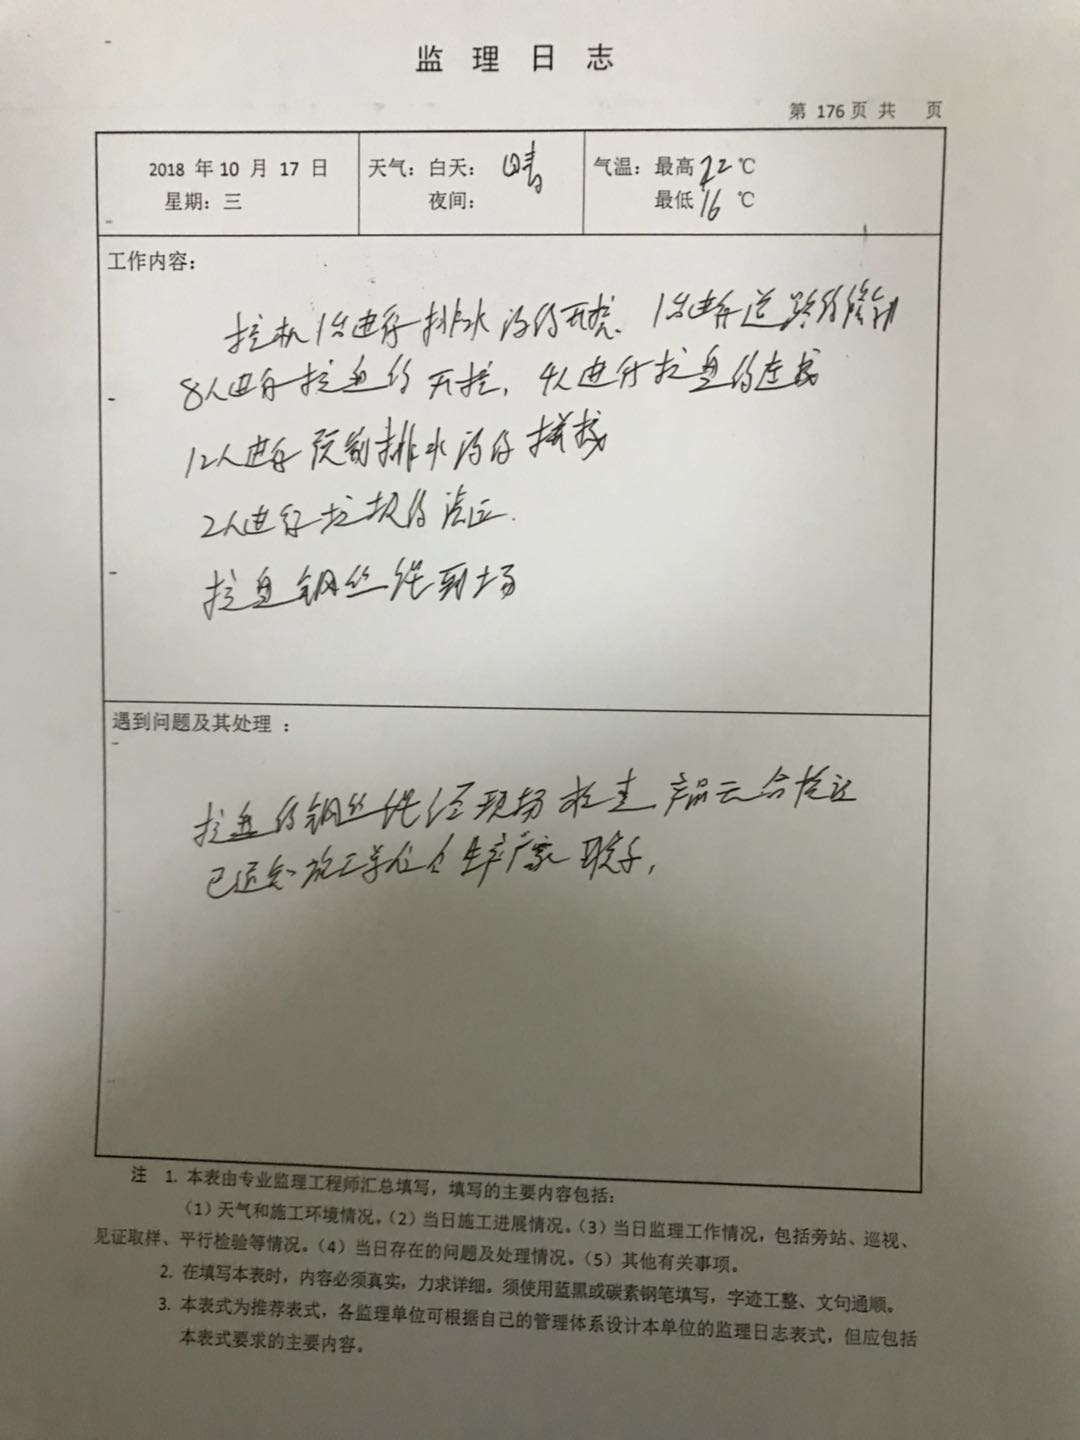 监 理 日 志
第 176页 共 页
2018 年 10 月 17 日
星期：三
天气：白天： 晴
夜间：
气温：最高 22 ℃
最低 16 ℃
工作内容：
挖机1台进行排水沟的开挖、1台进行道路的修筑
8人进行拉盘的开挖，4人进行拉盘的连接
12人进行预制排水沟的拼接
2人进行垃圾的清运.
拉盘钢丝绳到场
遇到问题及其处理 ：
拉盘的钢丝绳经现场检查，产品无合格证
已通知施工单位与生产厂家联系，
注 1. 本表由专业监理工程师汇总填写，填写的主要内容包括：
（1）天气和施工环境情况。（2）当日施工进展情况。（3）当日监理工作情况，包括旁站、巡视、
见证取样、平行检验等情况。（4）当日存在的问题及处理情况。（5）其他有关事项。
2. 在填写本表时，内容必须真实，力求详细。须使用蓝黑或碳素钢笔填写，字迹工整、文句通顺。
3. 本表式为推荐表式，各监理单位可根据自己的管理体系设计本单位的监理日志表式，但应包括
本表式要求的主要内容。